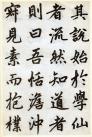 其說始於學仙
者流然知道者
則曰吾恬澹沖
寂見素而抱樸